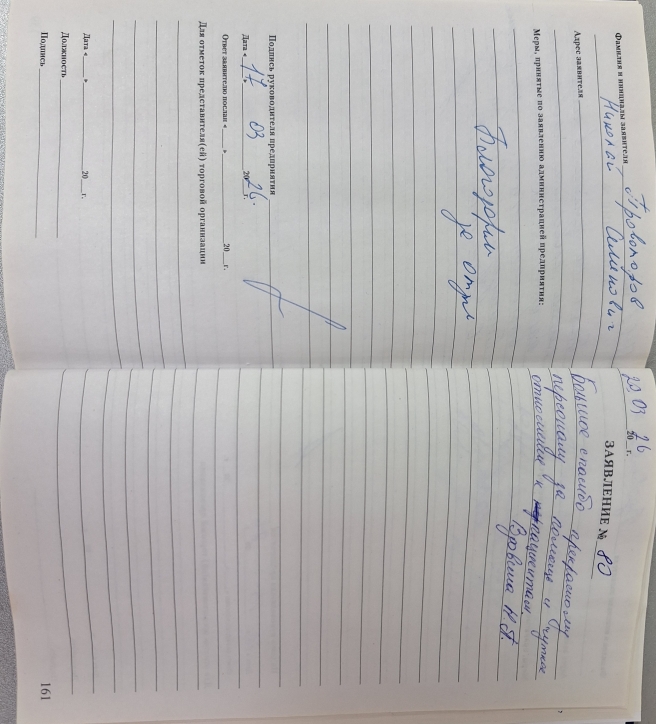 Фамилия и инициалы заявителя Провоторов
Николай Семенович
Адрес заявителя
Меры, принятые по заявлению администрацией предприятия:
Поблагодарили
за отзыв
Подпись руководителя предприятия
Дата « 17 » 03 20 26 г.
Ответ заявителю послан « » 20 г.
Для отметок представителя(ей) торговой организации
Дата « » 20 г.
Должность
Подпись
20 03 2026 г.
ЗАЯВЛЕНИЕ № 80
Большое спасибо прекрасному
персоналу за помощь и чуткое
отношение к пациентам
Н.А.
161